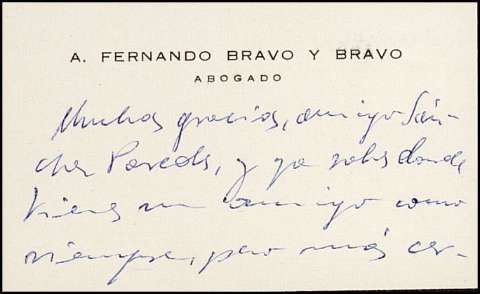 A. FERNANDO BRAVO Y BRAVO
ABOGADO
Muchas gracias, amigo Sán-
chez Paredes, y ya sabes donde
tienes un amigo como
siempre, pero más cer-